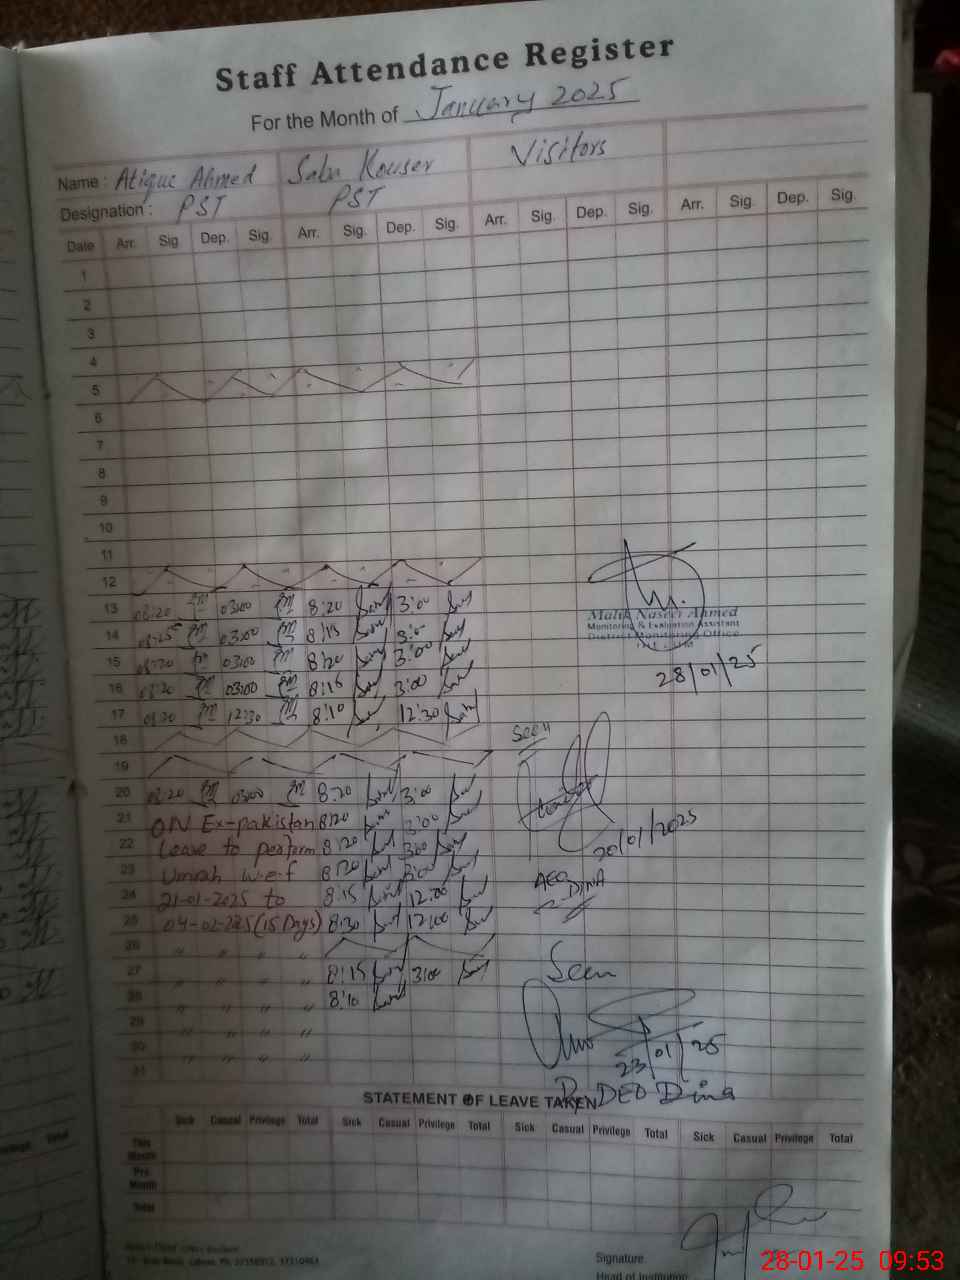 Staff Attendance Register
For the Month of January 2025
Name : Atique Ahmed Saba Kouser Visitors
Designation : PST PST
Date Arr. Sig. Dep. Sig. Arr. Sig. Dep. Sig. Arr. Sig. Dep. Sig. Arr. Sig. Dep. Sig.
1
2
3
4
5
6
7
8
9
10
11
12
13 08:20 03:00 8:20 3:00
14 08:25 03:00 8:15 3:00
15 08:20 03:00 8:20 3:00
16 08:20 03:00 8:15 3:00
17 08:20 12:30 8:10 12:30
Malik Naseer Ahmed
Monitoring & Evaluation Assistant
District Monitoring Office
28/01/25
18
19
Seen
20 08:20 03:00 8:20 3:00
21 ON Ex-pakistan 8:20 3:00
22 Leave to perform 8:20 3:00
23 Umrah w.e.f 8:20 3:00
24 21-01-2025 to 8:15 12:00
25 04-02-225 (15 Days) 8:30 12:00
20/01/2025
AEO DINA
26 " " " "
27 " " " " 8:15 3:00
28 " " " " 8:10
29 " " " "
30 " " " "
31
Seen
23/01/25
Dy DEO Dina
STATEMENT OF LEAVE TAKEN
Sick Casual Privilege Total Sick Casual Privilege Total Sick Casual Privilege Total Sick Casual Privilege Total
This Month
Pre Month
Total
Signature
Head of Institution
28-01-25 09:53